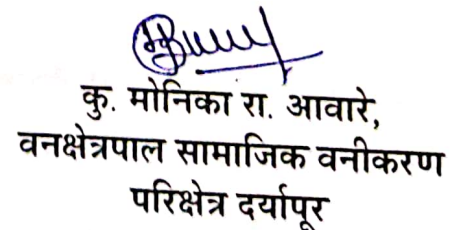 कु. मोनिका रा. आवारे,
वनक्षेत्रपाल सामाजिक वनीकरण
परिक्षेत्र दर्यापूर